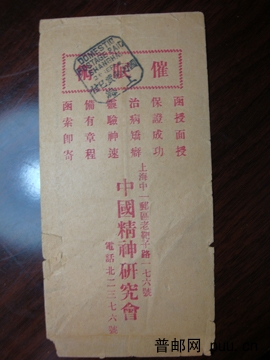 催眠術
函授面授
保證成功
治病矯癖
靈驗神速
備有章程
函索即寄
上海中一郵區老靶子路一七六號
中國精神研究會
電話北二三七六號
普邮网